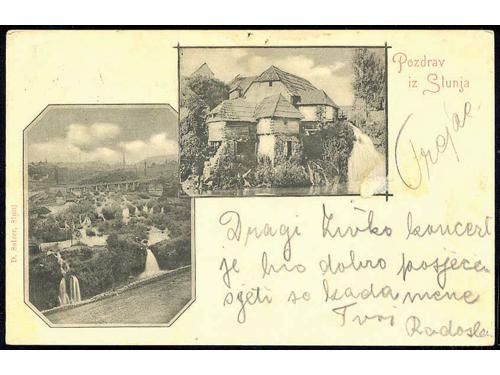 Pozdrav
iz Slunja
D. Salzer, Slunj
Dragi Živko koncert
je bio dobro posjećen
sjeti se kada mene
Tvoj
Radoslav